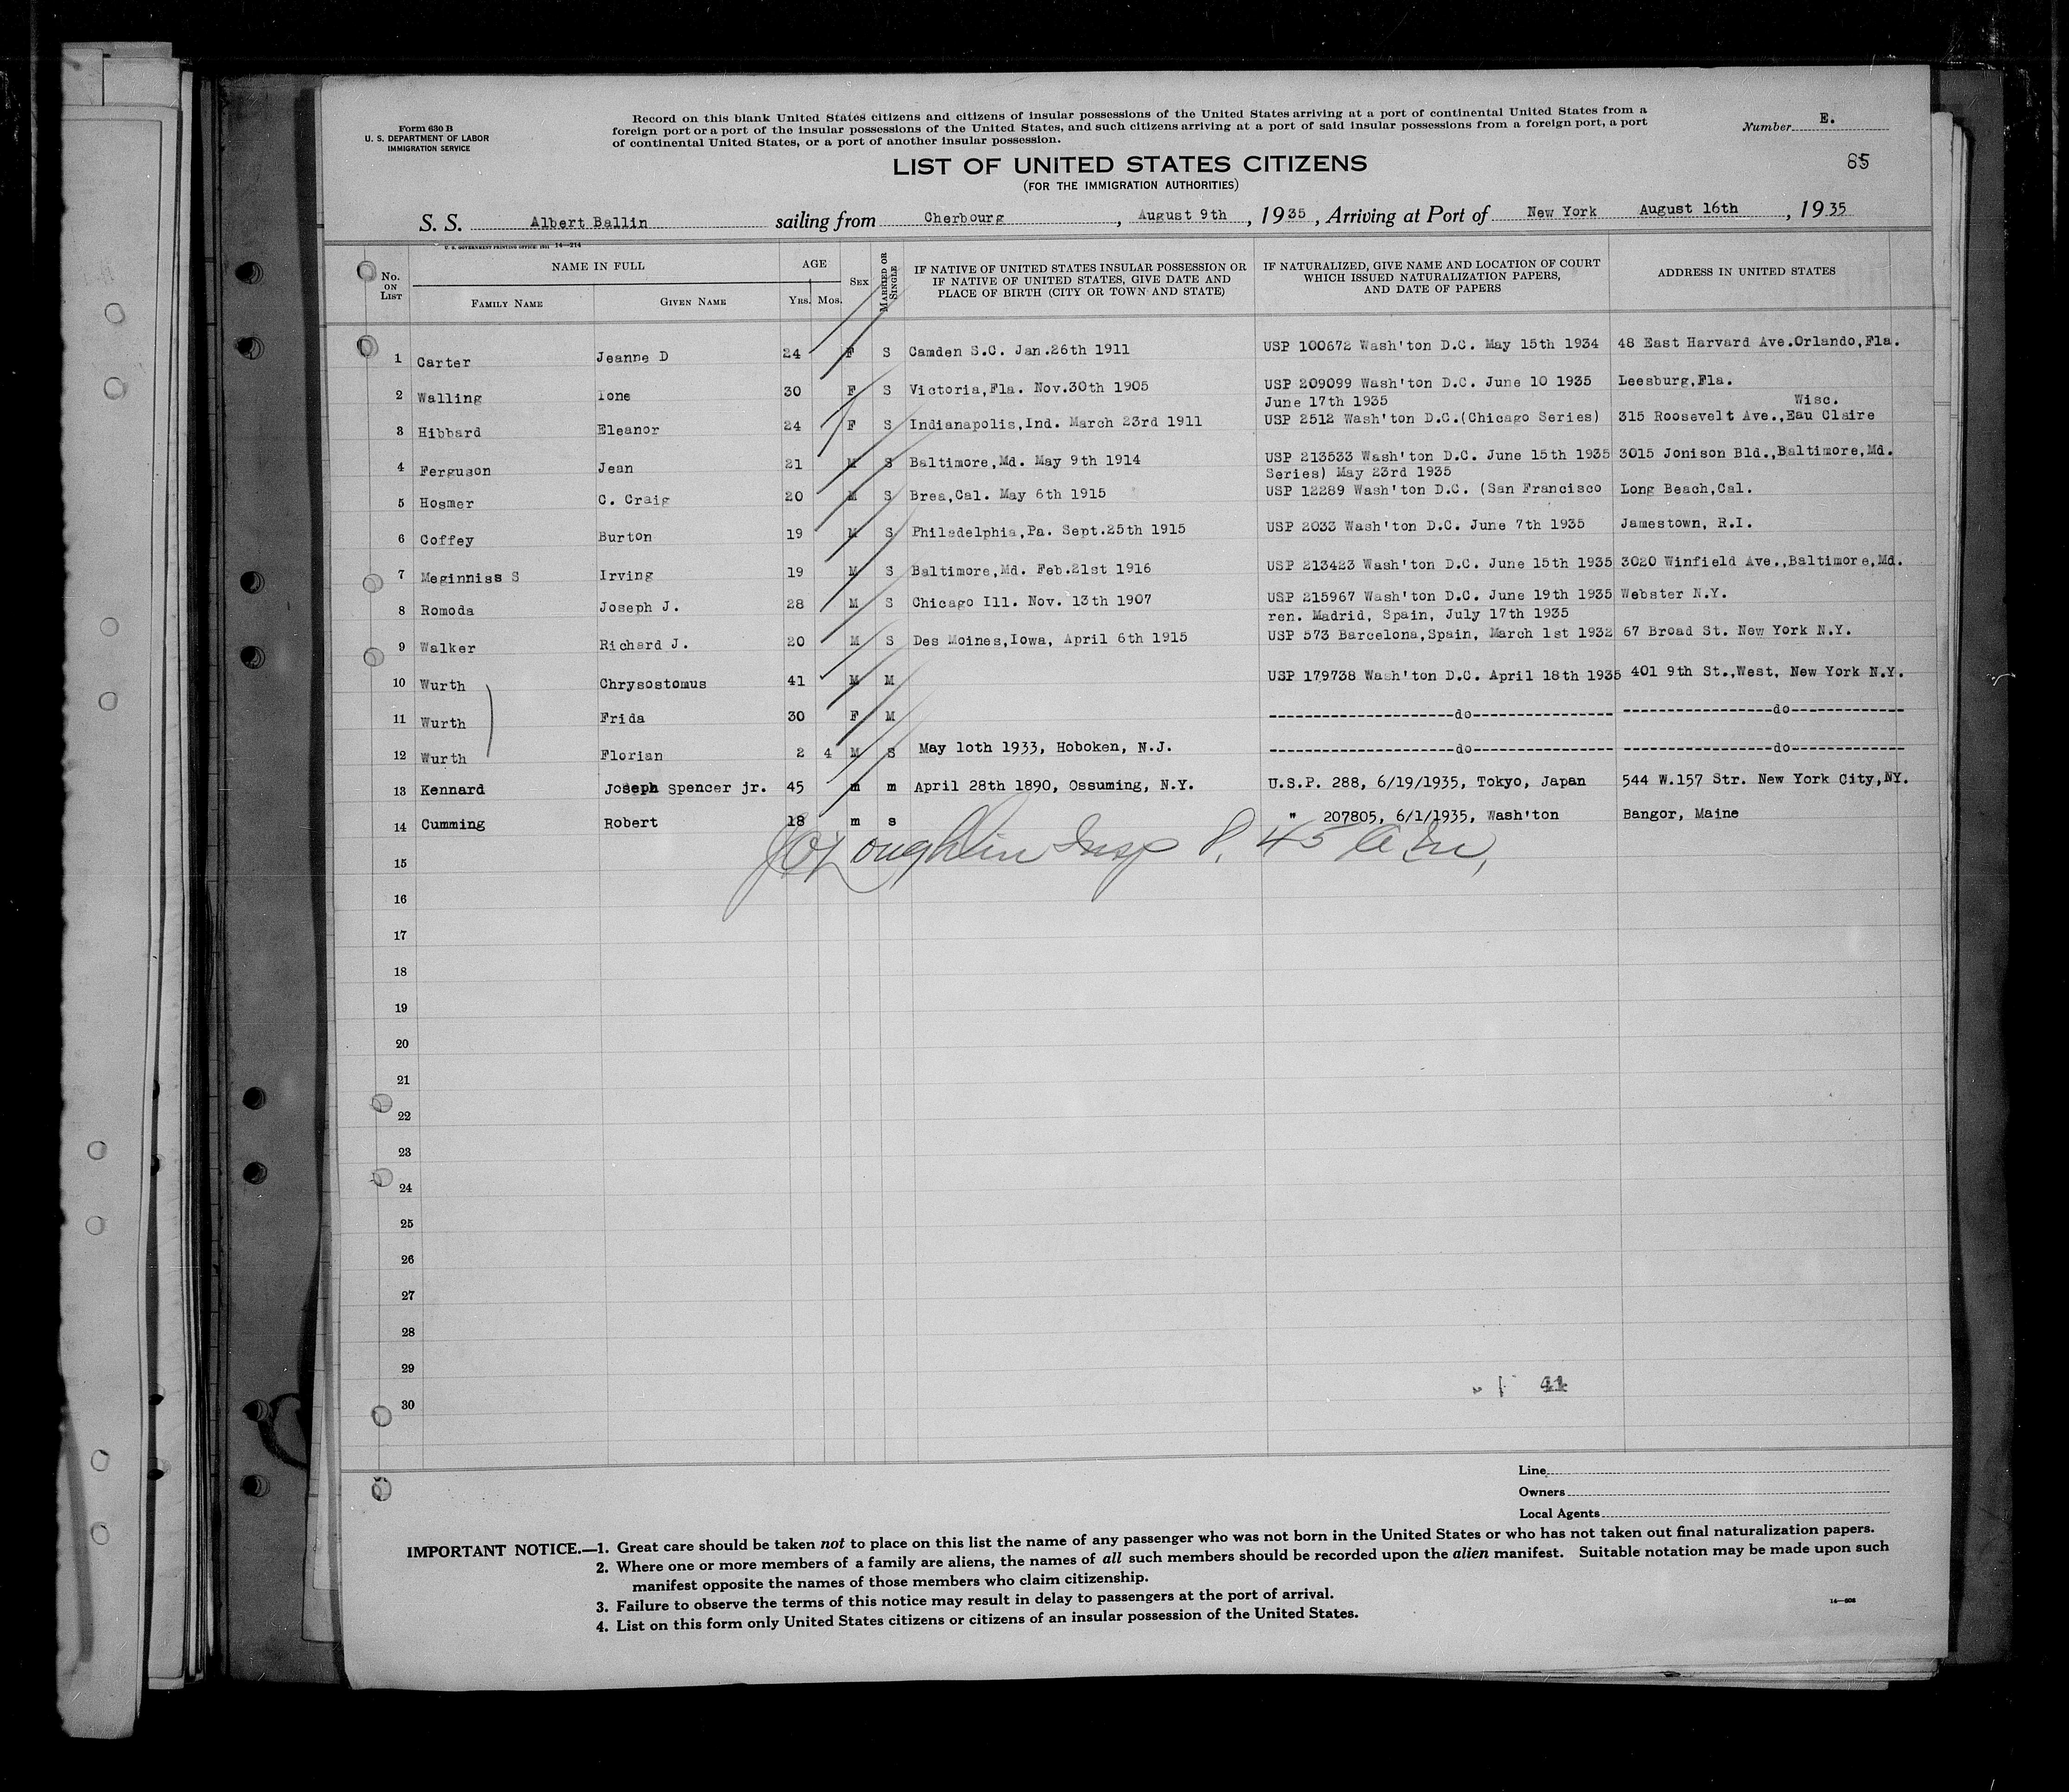 Form 630 B
U. S. DEPARTMENT OF LABOR
IMMIGRATION SERVICE
Record on this blank United States citizens and citizens of insular possessions of the United States arriving at a port of continental United States from a
foreign port or a port of the insular possessions of the United States, and such citizens arriving at a port of said insular possessions from a foreign port, a port
of continental United States, or a port of another insular possession.
Number E.
85
LIST OF UNITED STATES CITIZENS
(FOR THE IMMIGRATION AUTHORITIES)
S. S. Albert Ballin sailing from Cherbourg, August 9th, 1935, Arriving at Port of New York August 16th, 1935
U. S. GOVERNMENT PRINTING OFFICE: 1931 14—214
No. ON LIST
NAME IN FULL
FAMILY NAME
GIVEN NAME
AGE
YRS. MOS.
SEX
MARRIED OR SINGLE
IF NATIVE OF UNITED STATES INSULAR POSSESSION OR
IF NATIVE OF UNITED STATES, GIVE DATE AND
PLACE OF BIRTH (CITY OR TOWN AND STATE)
IF NATURALIZED, GIVE NAME AND LOCATION OF COURT
WHICH ISSUED NATURALIZATION PAPERS,
AND DATE OF PAPERS
ADDRESS IN UNITED STATES
1 Carter Jeanne D 24 F S Camden S.C. Jan.26th 1911 USP 100672 Wash'ton D.C. May 15th 1934 48 East Harvard Ave.Orlando,Fla.
2 Walling Ione 30 F S Victoria,Fla. Nov.30th 1905 USP 209099 Wash'ton D.C. June 10 1935 Leesburg,Fla.
June 17th 1935 Wisc.
3 Hibbard Eleanor 24 F S Indianapolis,Ind. March 23rd 1911 USP 2512 Wash'ton D.C.(Chicago Series) 315 Roosevelt Ave.,Eau Claire
4 Ferguson Jean 21 M S Baltimore,Md. May 9th 1914 USP 213533 Wash'ton D.C. June 15th 1935 3015 Jonison Bld.,Baltimore,Md.
Series) May 23rd 1935
5 Hosmer C. Craig 20 M S Brea,Cal. May 6th 1915 USP 12289 Wash'ton D.C. (San Francisco Long Beach,Cal.
6 Coffey Burton 19 M S Philadelphia,Pa. Sept.25th 1915 USP 2033 Wash'ton D.C. June 7th 1935 Jamestown, R.I.
7 Meginniss S Irving 19 M S Baltimore,Md. Feb.21st 1916 USP 213423 Wash'ton D.C. June 15th 1935 3020 Winfield Ave.,Baltimore,Md.
8 Romoda Joseph J. 28 M S Chicago Ill. Nov. 13th 1907 USP 215967 Wash'ton D.C. June 19th 1935 Webster N.Y.
ren. Madrid, Spain, July 17th 1935
9 Walker Richard J. 20 M S Des Moines,Iowa, April 6th 1915 USP 573 Barcelona,Spain, March 1st 1932 67 Broad St. New York N.Y.
10 Wurth Chrysostomus 41 M M USP 179738 Wash'ton D.C. April 18th 1935 401 9th St.,West, New York N.Y.
11 Wurth Frida 30 F M --------------------do---------------- ----------------do------------
12 Wurth Florian 2 4 M S May 10th 1933, Hoboken, N.J. --------------------do---------------- ----------------do------------
13 Kennard Joseph Spencer jr. 45 m m April 28th 1890, Ossuming, N.Y. U.S.P. 288, 6/19/1935, Tokyo, Japan 544 W.157 Str. New York City,NY.
14 Cumming Robert 18 m s " 207805, 6/1/1935, Wash'ton Bangor, Maine
O'Loughlin Insp 8.45 A.M,
15
16
17
18
19
20
21
22
23
24
25
26
27
28
29
30
Line
Owners
Local Agents
IMPORTANT NOTICE.—1. Great care should be taken not to place on this list the name of any passenger who was not born in the United States or who has not taken out final naturalization papers.
2. Where one or more members of a family are aliens, the names of all such members should be recorded upon the alien manifest. Suitable notation may be made upon such
manifest opposite the names of those members who claim citizenship.
3. Failure to observe the terms of this notice may result in delay to passengers at the port of arrival.
4. List on this form only United States citizens or citizens of an insular possession of the United States.